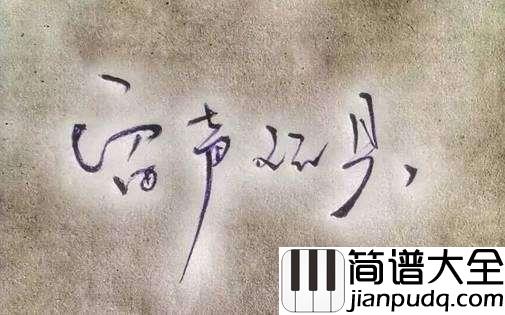 留声玩具
简谱大全
jianpudq.com